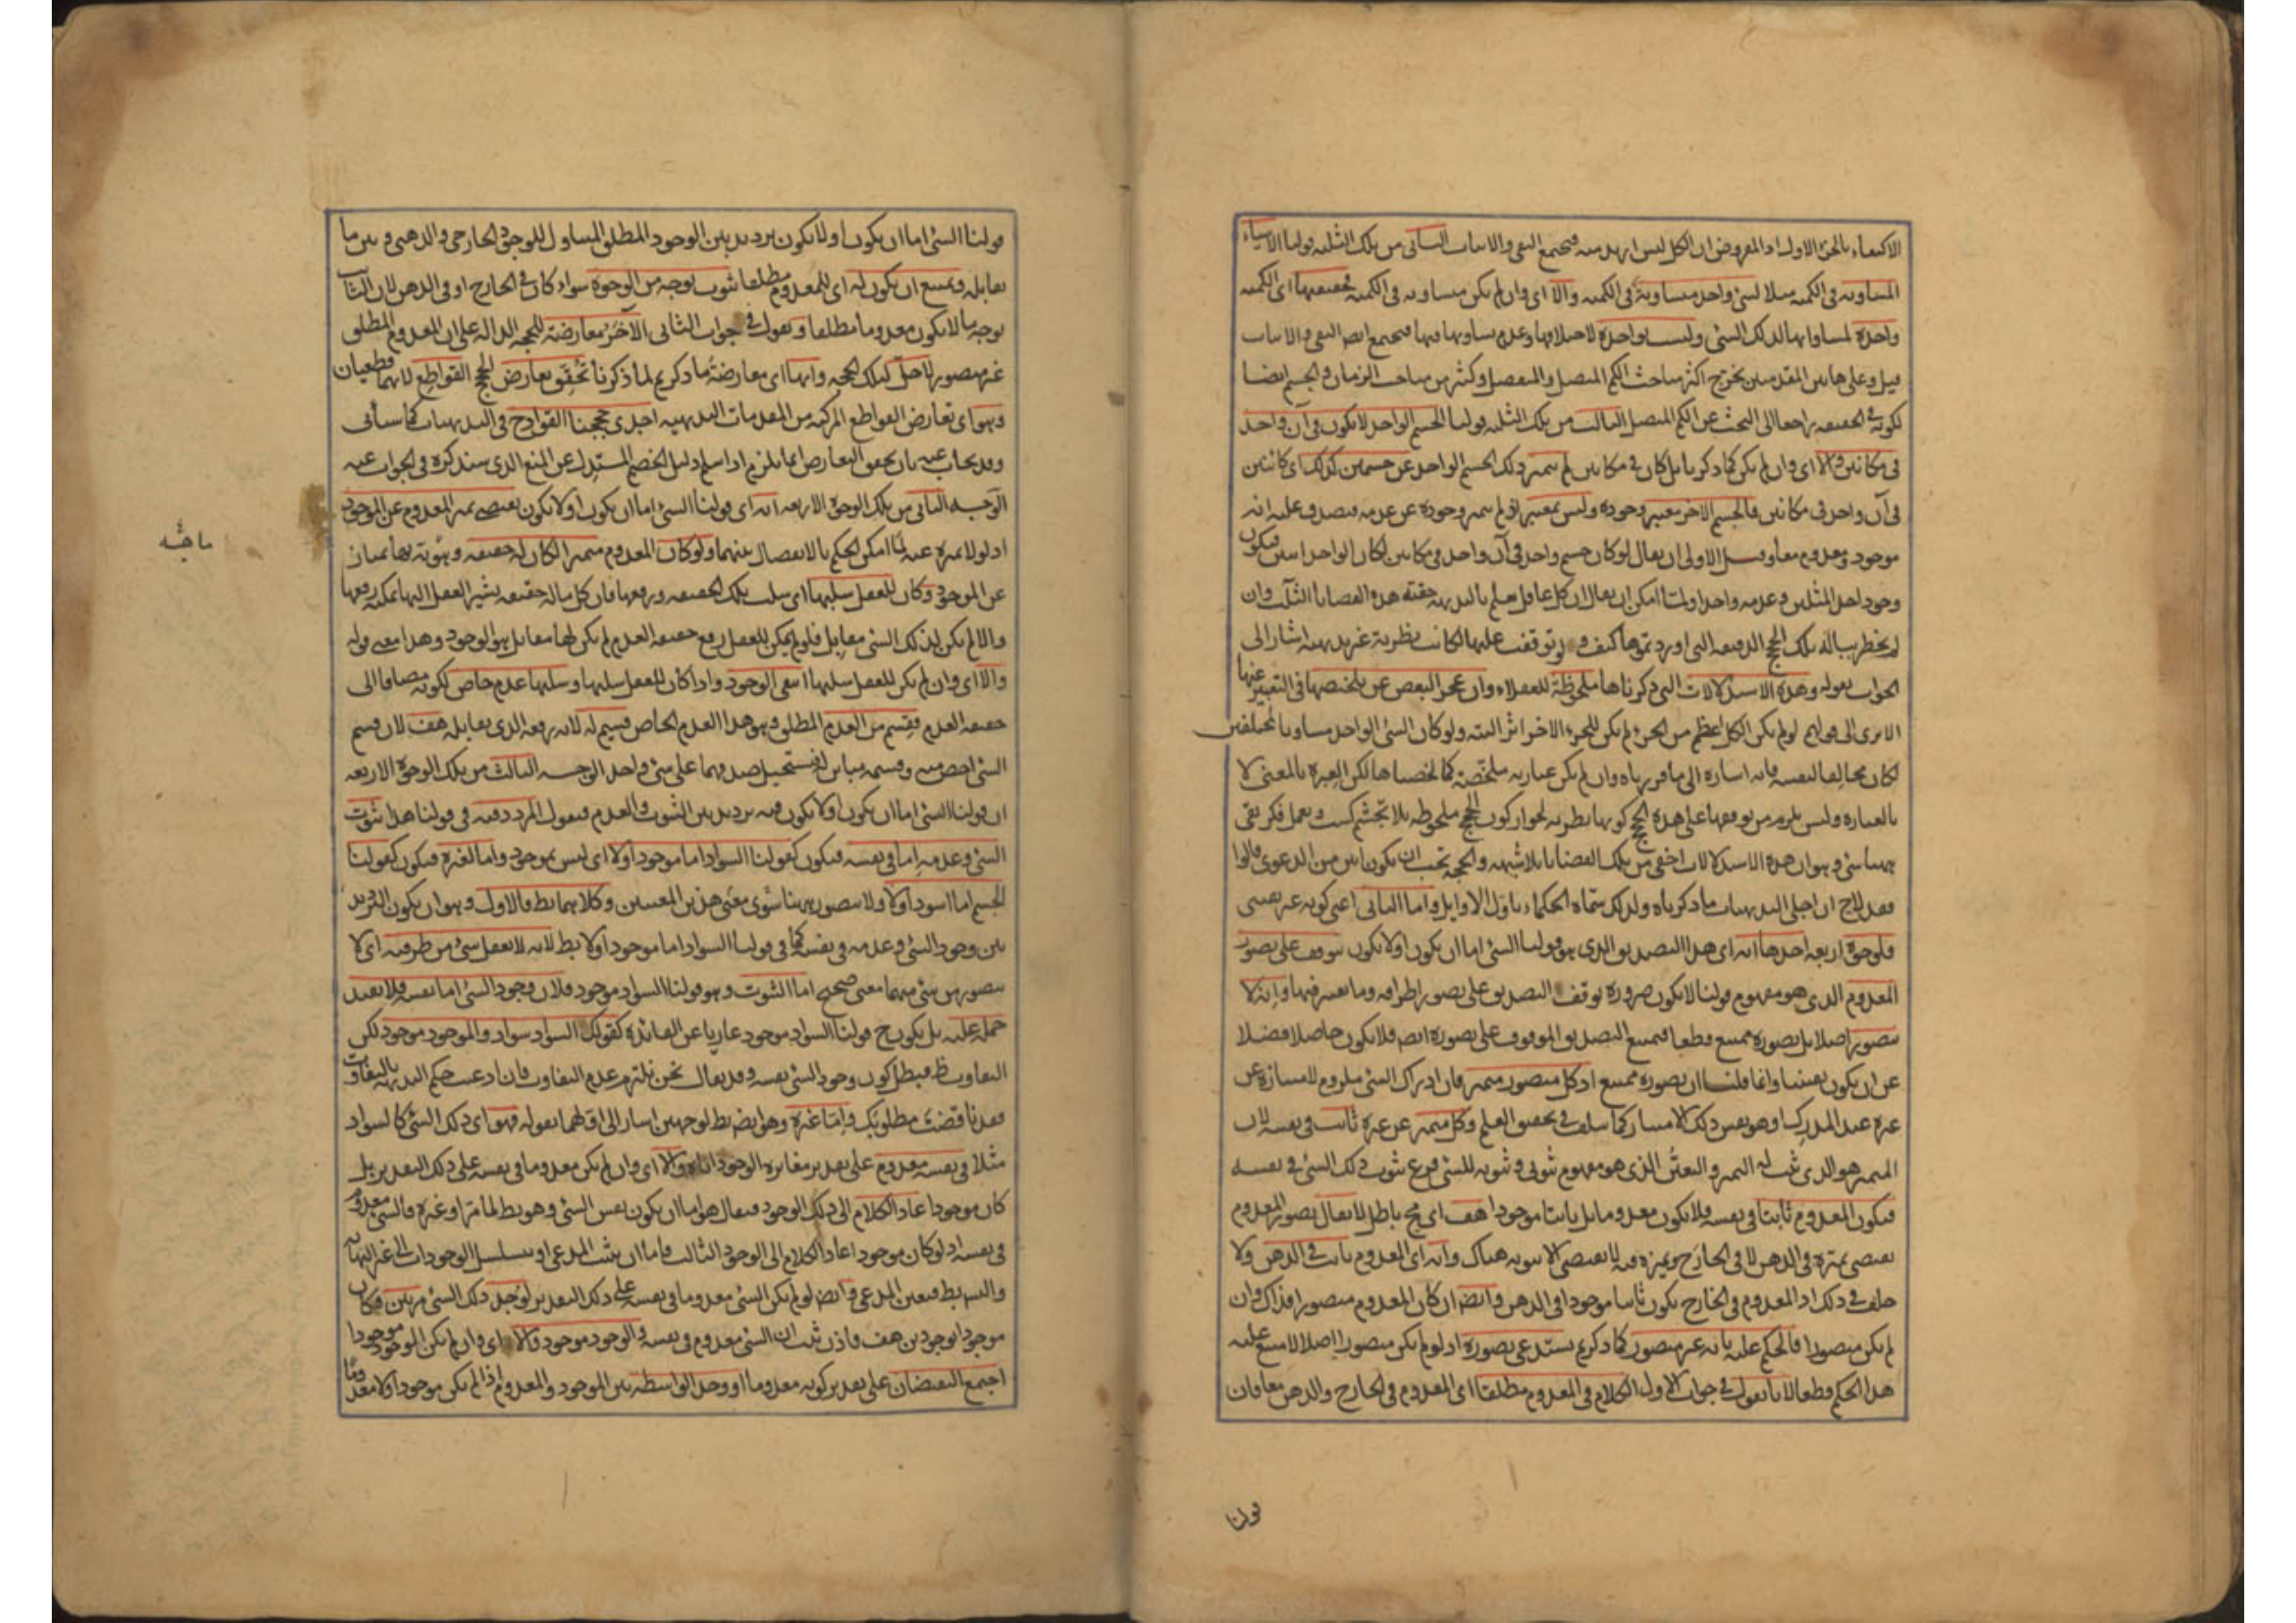 الاكتفاء بالجزء الاول اذ المفروض ان الكل ليس ازيد منه فيجتمع النفي والاثبات الثاني من تلك الثلثة قولنا الاشياء
المساوية في الكمية مثلا لشئ واحد متساوية في الكمية والا اى وان لم يكن متساوية في الكمية فحقيقتها اى الكمية
واحدة لمساواتها لذلك الشئ وليست بواحدة لاختلافها وعدم تساويها فيها فيجتمع ايض النفي والاثبات
قيل وعلى هاتين المقدمتين يخرج اكثر مباحث الكم المتصل والمنفصل وكثير من مباحث الزمان والجسم ايضا
لكونه في الحقيقة راجعا الى البحث عن الكم المتصل الثالث من تلك الثلثة قولنا الجسم الواحد لا يكون في آن واحد
في مكانين والا اى وان لم يكن كما ذكرنا بل كان في مكانين لم يتميز ذلك الجسم الواحد عن جسمين كذلك اى كائنين
في آن واحد في مكانين فالجسم الآخر معتبر وجوده وليس بمعتبر اذ لم يتميز وجوده عن عدمه فيصدق عليه انه
موجود ومعدوم معا وقيل الاولى ان يقال لو كان جسم واحد في آن واحد في مكانين لكان الواحد اثنين فيكون
وجود احد المثلين وعدمه واحدا ولما امكن ان يقال ان كل عاقل يعلم بالبديهة حقيّة هذه القضايا الثلث وان
لم يخطر بباله تلك الحجج الدقيقة التى اوردتموها كيف ولو توقفت عليها لكانت نظرية غير بديهية اشار الى
الجواب بقوله وهذه الاستدلالات التى ذكرناها ملحوظة للعقلاء وان عجز البعض عن تلخيصها في التعبير عنها
الا يرى الى قولهم لو لم يكن الكل اعظم من الجزء لم يكن للجزء الاخر اثر البتة ولو كان الشئ الواحد مساويا لمختلفين
لكان مخالفا لنفسه فانه اشارة الى ما قررناه وان لم يكن عبارته ملخّصة كما لخصناها لكن العبرة بالمعنى لا
بالعبارة وليس يلزم من توقفها على هذه الحجج كونها نظرية لجواز كون الحجج ملحوظة بلا تجشّم كسب وتعمل فكر بقى
ههنا شئ وهو ان هذه الاستدلالات اخفى من تلك القضايا بلا شبهة والحجة تجب ان يكون ابين من الدعوى قالوا
فقد لاح ان اجلى البديهيات ما ذكرناه ولذلك سمّاه الحكماء باوّل الاوايل واما الثاني اعنى كونه غير يقيني
فلوجوه اربعة احدها انه اى هذا التصديق الذى هو قولنا الشئ اما ان يكون او لا يكون يتوقف على تصور
المعدوم الذى هو مفهوم قولنا لا يكون ضرورة توقف التصديق على تصور اطرافه وما يعتبر فيها وانه لا
يتصور اصلا بل تصوره ممتنع قطعا فيمتنع التصديق الموقوف على تصوره ايض فلا يكون حاصلا فضلا
عن ان يكون يقينيا وانما قلنا ان تصوره ممتنع اذ كل متصور متميز فان ادراك الشئ ملزوم لامتيازه عن
غيره عند المدرك او هو نفس ذلك الامتياز كما سلف في تحقيق العلم وكل متميز عن غيره ثابت في نفسه لان
المتميز هو الذى ثبت له التميز والتعيّن الذى هو مفهوم ثبوتي وثبوته للشئ فرع ثبوت ذلك الشئ في نفسه
فيكون المعدوم ثابتا في نفسه فلا يكون معدوما بل ثابتا موجودا هف اى مح باطل لا يقال تصور المعدوم
يقتضى تميّزه في الذهن لا في الخارج وتميزه فيه لا يقتضى الا ثبوته هناك وانه اى المعدوم ثابت في الذهن ولا
خلف في ذلك اذ المعدوم في الخارج يكون ثابتا موجودا في الذهن وايض ان كان المعدوم متصورا فذاك وان
لم يكن متصورا فالحكم عليه بانه غير متصور كما ذكرتم يستدعى تصوره اذ لو لم يكن متصورا اصلا لامتنع عليه
هذا الحكم قطعا لانا نقول في جواب الاول الكلام في المعدوم مطلقا اى المعدوم في الخارج والذهن معا فان
قولنا
قولنا الشئ اما ان يكون او لا يكون ترديد بين الوجود المطلق المتناول للوجود الخارجي والذهنى وبين ما
يقابله ويمتنع ان يكون له اى للمعدوم مطلقا ثبوت بوجه من الوجوه سواء كان في الخارج او في الذهن لان الثابت
بوجه ما لا يكون معدوما مطلقا ونقول في جواب الثاني الآخر معارضة للحجة الدالة على ان المعدوم المطلق
غير متصور لا حلّ لتلك الحجة وانها اى معارضة ما ذكرتم لما ذكرنا تحقّق تعارض الحجج القواطع لانهما قطعيان
وهو اى تعارض القواطع المركبة من المقدمات البديهية احدى حججنا القوادح في البديهيات كما سيأتى
وقد يجاب عنه بان تحقق التعارض انما يلزم اذا سلم دليل الخصم المستدِل عن المنع الذى سنذكره في الجواب عنه
الوجه الثاني من تلك الوجوه الاربعة انه اى قولنا الشئ اما ان يكون او لا يكون يقتضى تميز المعدوم عن الموجود
اذ لولا تميزه عنه لما امكن الحكم بالانفصال بينهما ولو كان المعدوم متميزا لكان له حقيقة وهويّة بها يمتاز
عن الموجود وكان للعقل سلبها اى سلب تلك الحقيقة ورفعها فان كل ما له حقيقة يشير العقل اليها يمكنه رفعها
والا لم يكن لذلك الشئ مقابل فلو لم يمكن للعقل رفع حقيقة العدم لم يكن لها مقابل هو الوجود وهذا معنى قوله
والا اى وان لم يكن للعقل سلبها انتفى الوجود واذا كان للعقل سلبها وسلبها عدم خاص لكونه مضافا الى
حقيقة العدم فقسم من العدم المطلق وهو هذا العدم الخاص قسيم له لانه رفعه الذى يقابله هف لان قسم
الشئ اخص منه وقسيمه مباين له فيستحيل صدقهما على شئ واحد الوجه الثالث من تلك الوجوه الاربعة
ان قولنا الشئ اما ان يكون او لا يكون فيه ترديد بين الثبوت والعدم فنقول المردد فيه في قولنا هذا ثبوت
الشئ وعدمه اما في نفسه فيكون كقولنا السواد اما موجود اولا اى ليس بموجود واما لغيره فيكون كقولنا
الجسم اما اسود اولا ولا يتصور ههنا سوى معنى هذين المعنيين وكلاهما بط فالاول وهو ان يكون الترديد
بين وجود الشئ وعدمه في نفسه كما في قولنا السواد اما موجود اولا بط لانه لا يعقل شئ من طرفيه اى لا
يتصور من شئ منهما معنى صحيح اما الثبوت وهو قولنا السواد موجود فلان وجود الشئ اما نفسه فلا يفيد
حمله عليه بل يكون ح قولنا السواد موجود عاريا عن الفائدة كقولك السواد سواد والموجود موجود لكن
التفاوت ظ فبطل كون وجود الشئ نفسه وقد يقال نحن نلتزم عدم التفاوت فان ادعيت حكم البديهة بالتفاوت
فقد ناقضت مطلوبك واما غيره وهو ايض بط لوجهين اشار الى اولهما بقوله فهو اى ذلك الشئ كالسواد
مثلا في نفسه معدوم على تقدير مغايرة الوجود اياه والا اى وان لم يكن معدوما في نفسه على ذلك التقدير بل
كان موجودا عاد الكلام الى ذلك الوجود فيقال هو اما ان يكون نفس الشئ وهو بط لما مرّ او غيره فالشئ معدوم
في نفسه اذ لو كان موجودا عاد الكلام الى الوجود الثالث فاما ان يثبت المدعى او يتسلسل الوجودات الى غير النهاية
والتسلسل بط فتعين المدعى وايض لو لم يكن الشئ معدوما في نفسه على ذلك التقدير لوجد ذلك الشئ مرتين فكان
موجودا بوجودين هف فاذن ثبت ان الشئ معدوم في نفسه والوجود موجود والا اى وان لم يكن الموجود موجودا
اجتمع النقيضان على تقدير كونه معدوما او وجد الواسطة بين الموجود والمعدوم اذا لم يكن موجودا ولا معدوما